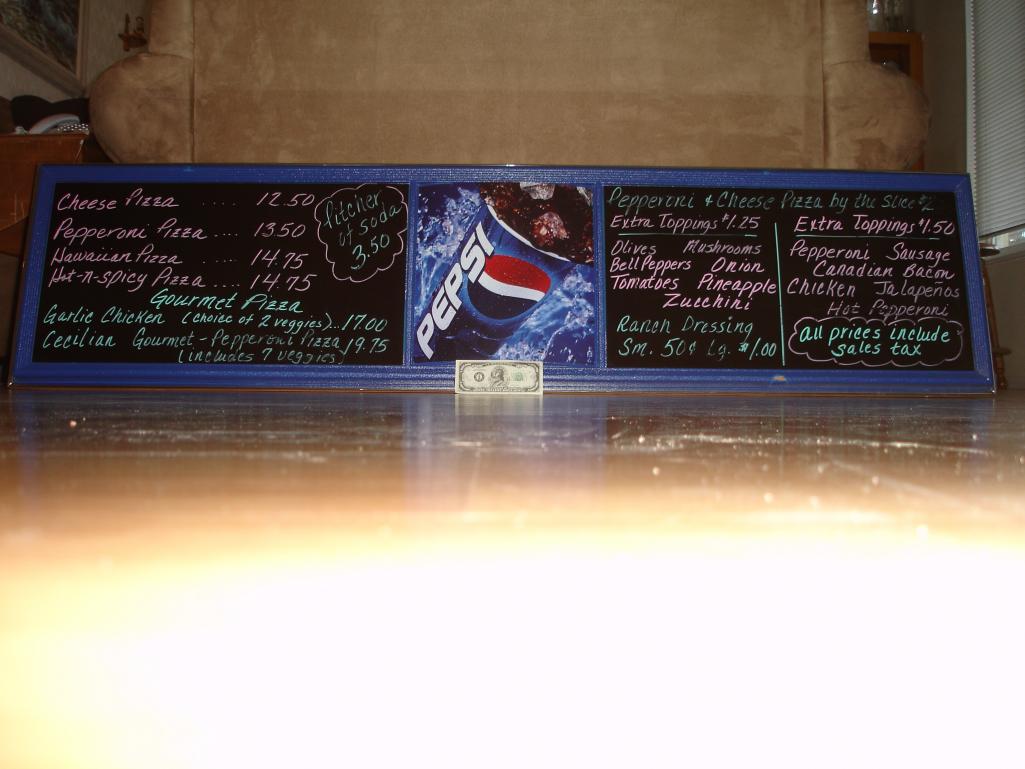 Cheese Pizza .... 12.50
Pepperoni Pizza .... 13.50
Hawaiian Pizza .... 14.75
Hot-n-spicy Pizza .... 14.75
Pitcher
of soda
3.50
Gourmet Pizza
Garlic Chicken (choice of 2 veggies)..17.00
Cecilian Gourmet-Pepperoni Pizza/19.75
(includes 7 veggies)
PEPSI
Pepperoni & Cheese Pizza by the slice $2
Extra Toppings $1.25
Olives Mushrooms
Bell Peppers Onion
Tomatoes Pineapple
Zucchini
Ranch Dressing
Sm. 50¢ Lg. $1.00
Extra Toppings $1.50
Pepperoni Sausage
Canadian Bacon
Chicken Jalapeños
Hot Pepperoni
All prices include
sales tax